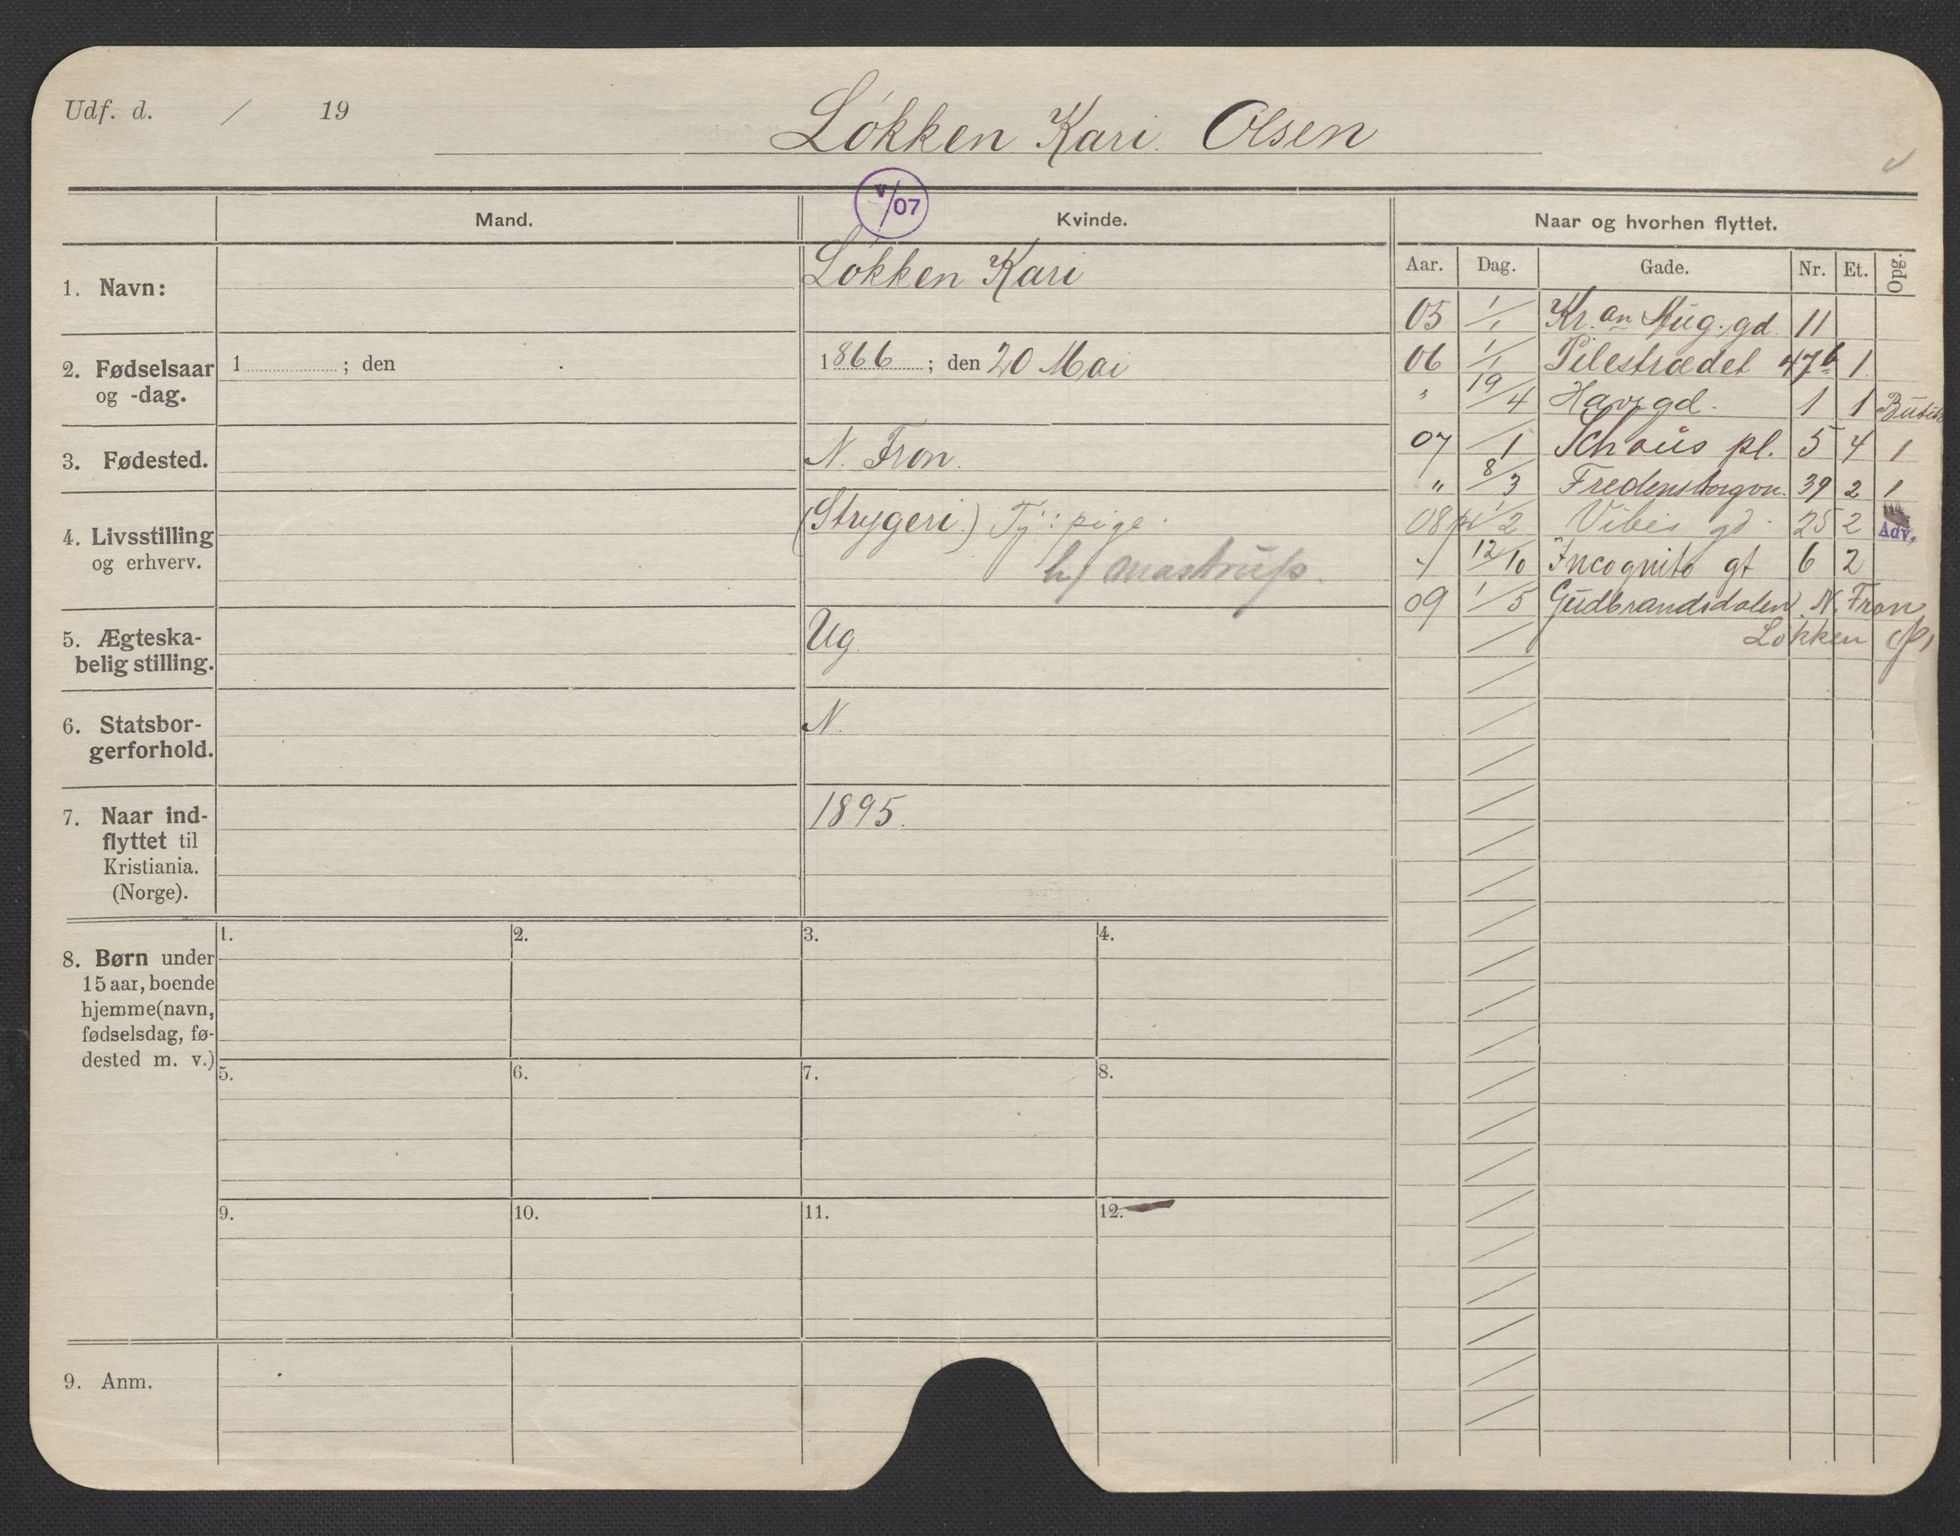 Udf. d. / 19
Løkken Kari. Olsen
V/07
Mand. Kvinde. Naar og hvorhen flyttet.
Aar. Dag. Gade. Nr. Et. Opg.
1. Navn: Løkken Kari
2. Fødselsaar og -dag. 1 ; den 1866 ; den 20 Mai
3. Fødested. N. Fron.
4. Livsstilling og erhverv. (Strygeri.) Tj: pige.
h/
5. Ægteska-
belig stilling. Ug.
6. Statsbor-
gerforhold. N.
7. Naar ind-
flyttet til
Kristiania.
(Norge). 1895.
05 1/1 Kr.an Aug. gd. 11
06 1/1 Pilestrædet 47b 1
" 19/4 Havegd. 1 1 Butik
07 /1 Schous pl. 5 4 1
" 8/3 Fredensborgvn. 39 2 1
08 1/2 Vibes gd. 25 2 Adv.
" 12/10 Incognito gt 6 2
09 1/5 Gudbrandsdalen. N. Fron
Løkken
8. Børn under
15 aar, boende
hjemme (navn,
fødselsdag, fø-
dested m. v.)
1. 2. 3. 4.
5. 6. 7. 8.
9. 10. 11. 12.
9. Anm.